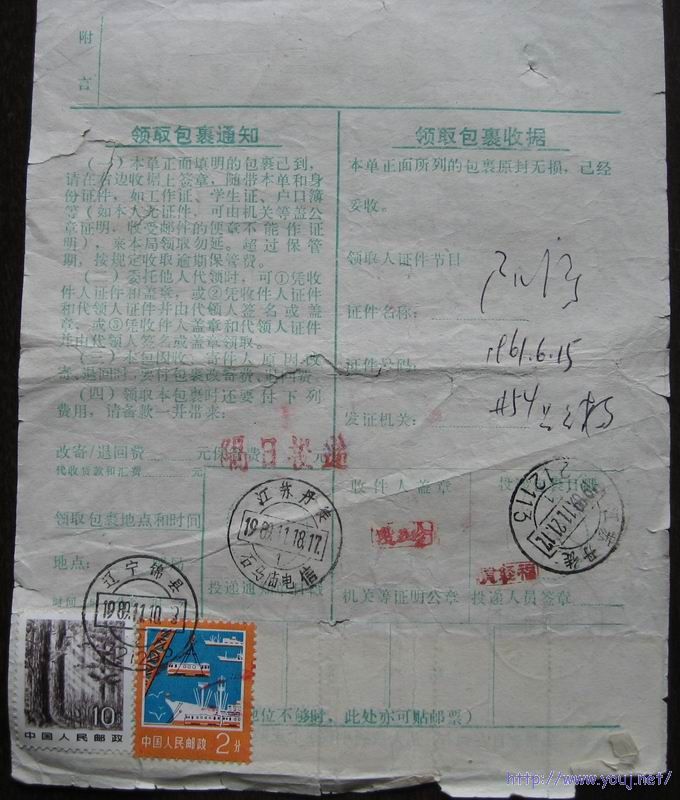 附
言
领取包裹通知
(一)本单正面填明的包裹已到,
请在右边收据上签章,随带本单和身
份证件,如工作证、学生证、户口簿
等(如本人无证件,可由机关等盖公
章证明,收受邮件的便章不能作证
明),来本局领取勿延。超过保管
期,按规定收取逾期保管费。
(二)委托他人代领时,可①凭收
件人证件和盖章,或②凭收件人证件
和代领人证件并由代领人签名或盖
章,或③凭收件人盖章和代领人证件
并由代领人签名或盖章领取。
(三)本包因收、寄件人原因改
寄、退回时,要付包裹改寄费、退回费
(四)领取本包裹时还要付下列
费用,请备款一并带来:
改寄/退回费 元保 费 元
代收货款和汇费 元
领取包裹地点和时间
地点: 局
时间
投递通知
领取包裹收据
本单正面所列的包裹原封无损,已经
妥收。
领取人证件节目
证件名称:
证件号码:
1961.6.15
发证机关:
#54
收件人盖章
机关等证明公章
投递人员签章
隔日投递
江苏丹徒
1989.11.18.17
石马庙电信
丹徒
1989.11.21.17
212113
辽宁锦县
1989.11.10
10
中国人民邮政
中国人民邮政
2分
地位不够时,此处亦可贴邮票)
http://www.youj.net/